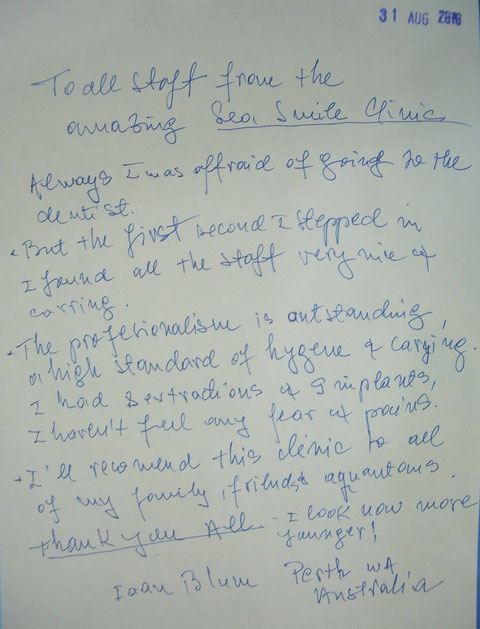 31 AUG 2010
To all staff from the
amazing Sea Smile Clinic
Always I was affraid of going to the
dentist.
But the first second I stepped in
I found all the staff very nice &
carring.
The profesionalism is outstanding,
a high standard of hygene & carying.
I had 8 extractions & 9 implants,
I haven't feel any fear & pains.
I'll recomend this clinic to all
of my family, friends & aquantous.
thank you All. - I look now more
younger!
Ioan Blum Perth WA
Australia